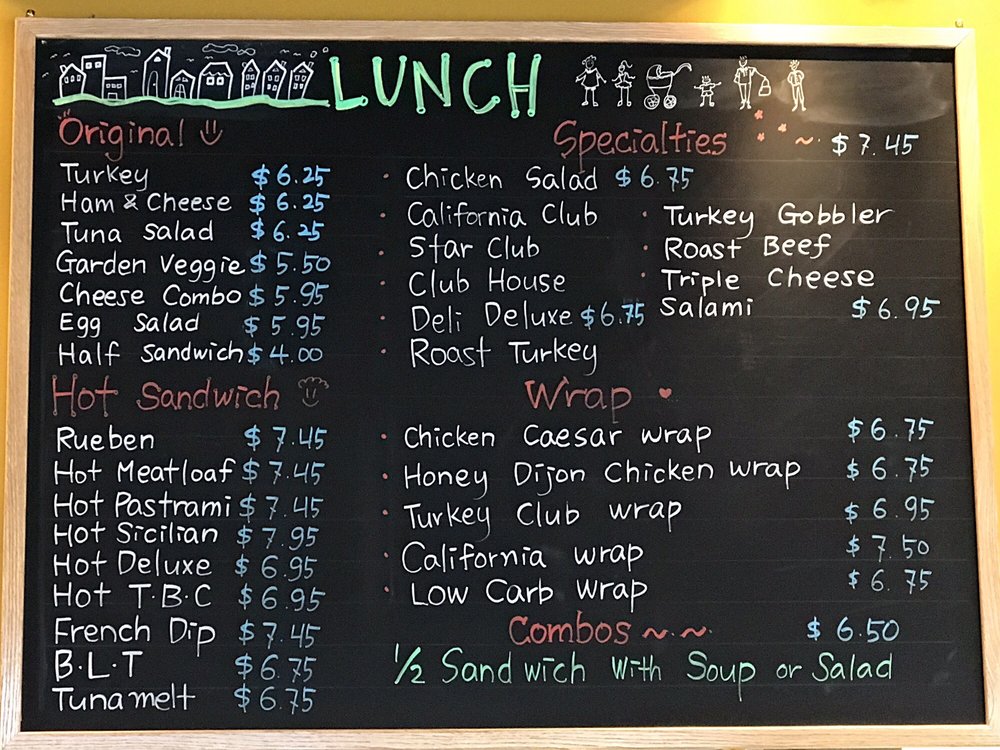 LUNCH
Original
Turkey $6.25
Ham & Cheese $6.25
Tuna Salad $6.25
Garden Veggie $5.50
Cheese Combo $5.95
Egg Salad $5.95
Half Sandwich $4.00
Hot Sandwich
Rueben $7.45
Hot Meatloaf $7.45
Hot Pastrami $7.45
Hot Sicilian $7.95
Hot Deluxe $6.95
Hot T·B·C $6.95
French Dip $7.45
B·L·T $6.75
Tuna melt $6.75
Specialties ~ $7.45
· Chicken Salad $6.75
· California Club
· Star Club
· Club House
· Deli Deluxe $6.75
· Roast Turkey
· Turkey Gobbler
· Roast Beef
· Triple Cheese
Salami $6.95
Wrap
· Chicken Caesar wrap $6.75
· Honey Dijon Chicken wrap $6.75
· Turkey Club wrap $6.95
· California wrap $7.50
· Low Carb wrap $6.75
Combos ~ ~ $6.50
1/2 Sandwich With Soup or Salad